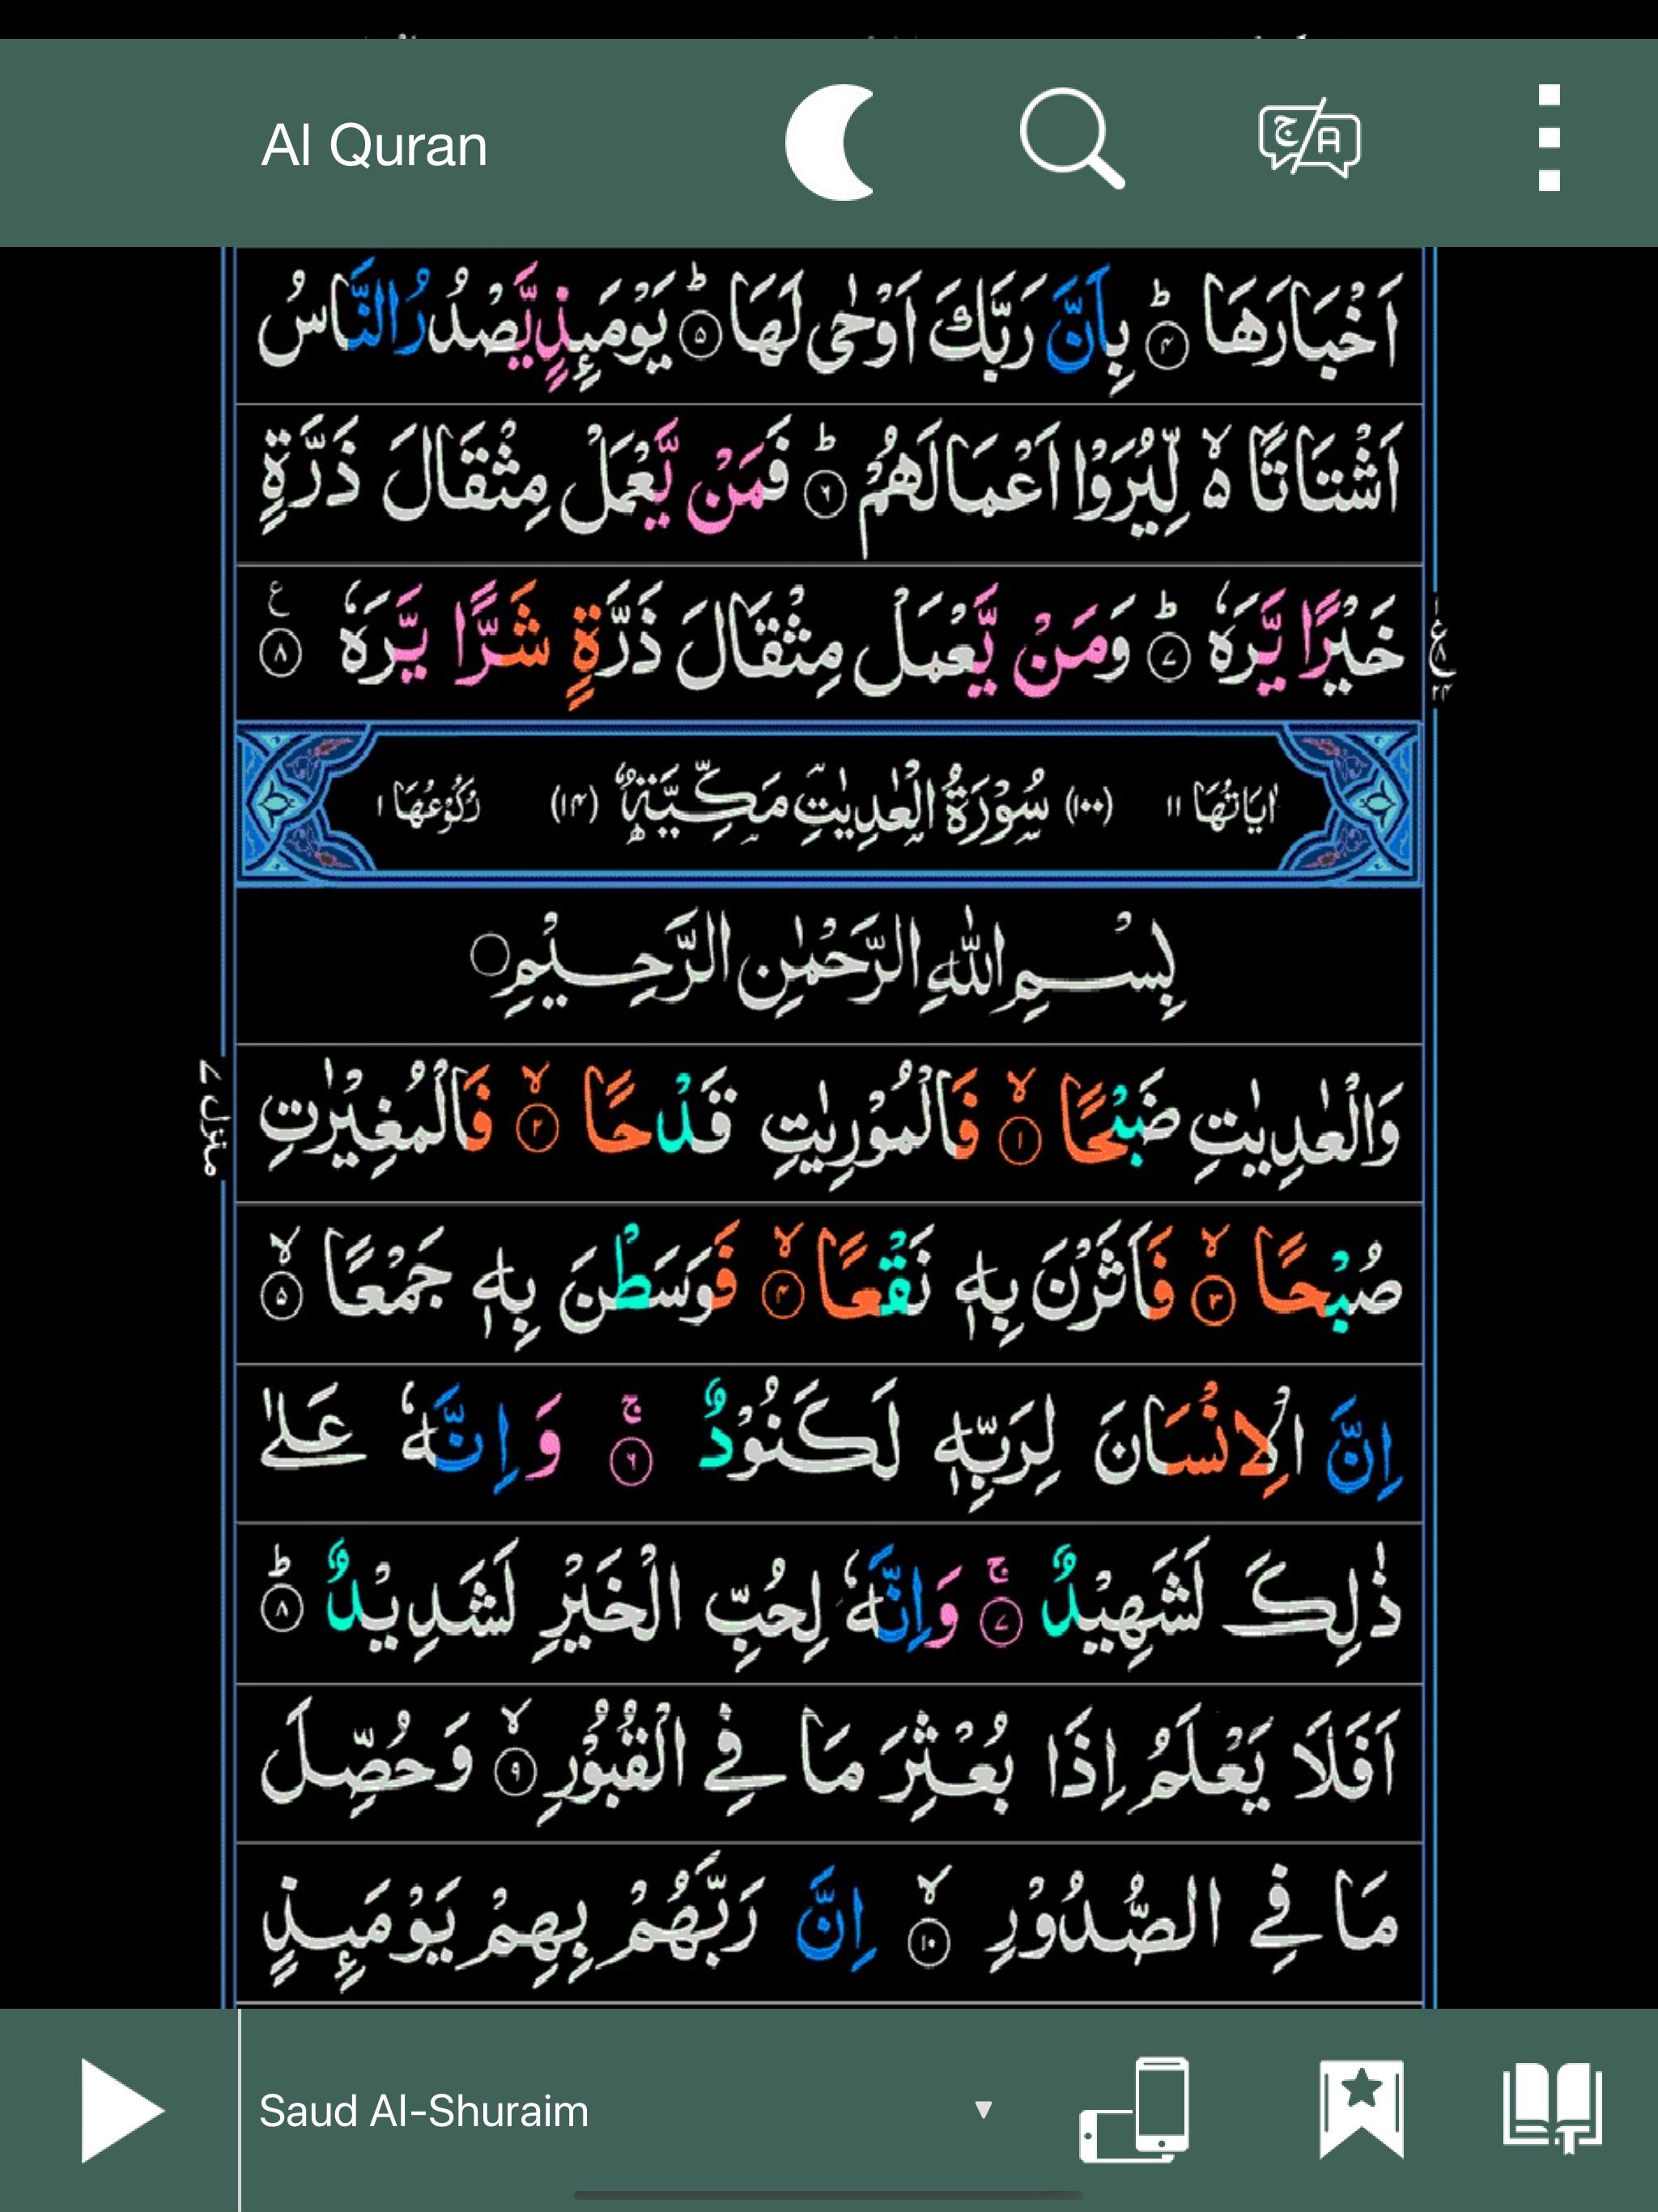 Al Quran
اَخْبَارَهَا ۙ۴ بِاَنَّ رَبَّكَ اَوْحٰى لَهَا ؕ۵ يَوْمَىِٕذٍ يَّصْدُرُ النَّاسُ
اَشْتَاتًا ۙ۬ لِّيُرَوْا اَعْمَالَهُمْ ؕ۶ فَمَنْ يَّعْمَلْ مِثْقَالَ ذَرَّةٍ
خَيْرًا يَّرَهٗ ؕ۷ وَمَنْ يَّعْمَلْ مِثْقَالَ ذَرَّةٍ شَرًّا يَّرَهٗ ۸ ع
ع ۸ ۲۴
اٰيَاتُهَا ۱۱ (۱۰۰) سُوْرَةُ الْعٰدِيٰتِ مَكِّيَّةٌ (۱۴) رُكُوْعُهَا ۱
بِسْمِ اللّٰهِ الرَّحْمٰنِ الرَّحِيْمِ
وَالْعٰدِيٰتِ ضَبْحًا ۙ۱ فَالْمُوْرِيٰتِ قَدْحًا ۙ۲ فَالْمُغِيْرٰتِ
منزل ۷
صُبْحًا ۙ۳ فَاَثَرْنَ بِهٖ نَقْعًا ۙ۴ فَوَسَطْنَ بِهٖ جَمْعًا ۙ۵
اِنَّ الْاِنْسَانَ لِرَبِّهٖ لَكَنُوْدٌ ۚ۶ وَاِنَّهٗ عَلٰى
ذٰلِكَ لَشَهِيْدٌ ۚ۷ وَاِنَّهٗ لِحُبِّ الْخَيْرِ لَشَدِيْدٌ ؕ۸
اَفَلَا يَعْلَمُ اِذَا بُعْثِرَ مَا فِى الْقُبُوْرِ ۙ۹ وَحُصِّلَ
مَا فِى الصُّدُوْرِ ۙ۱۰ اِنَّ رَبَّهُمْ بِهِمْ يَوْمَىِٕذٍ
Saud Al-Shuraim